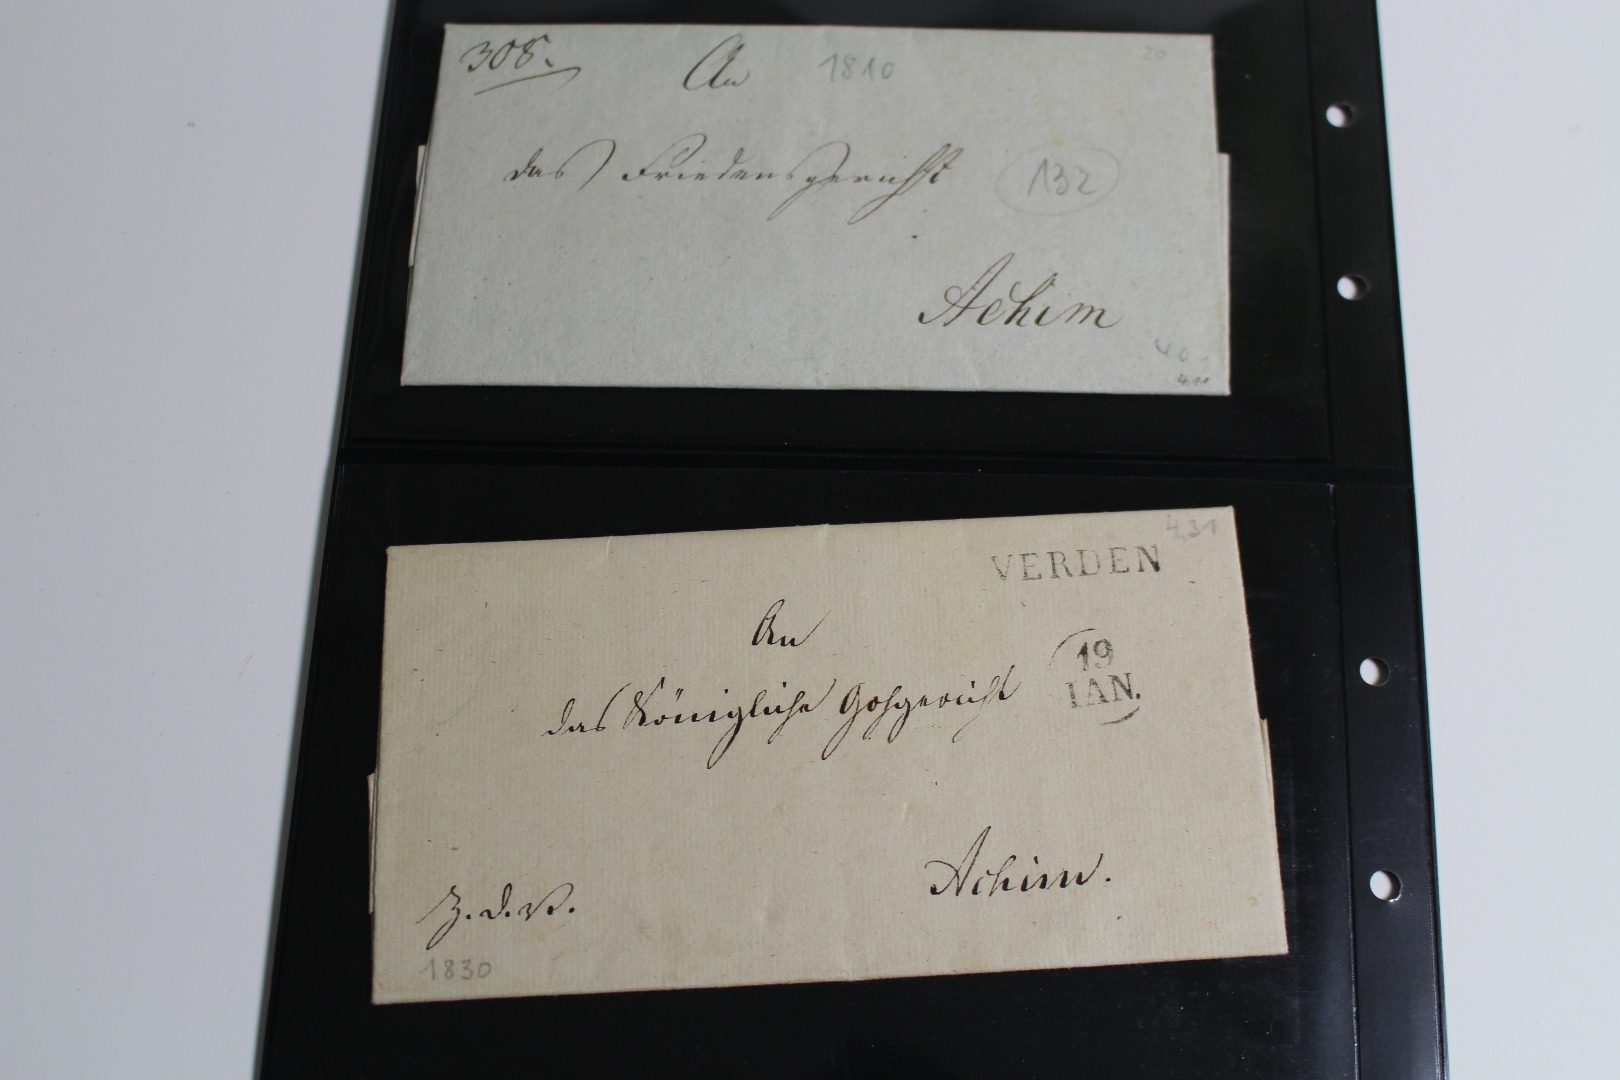 308. An 1810 20
das Friedensgericht 132
Achim
40.-
4.10
VERDEN 4.31
An
19
IAN.
das Königliche Gohgericht
Achim.
Z. d. V.
1830